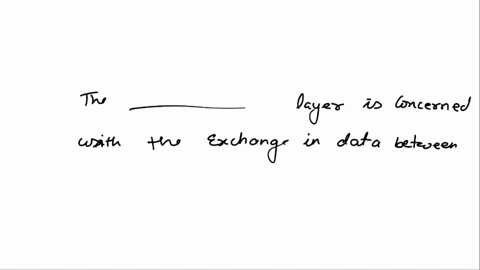 The __________ layer is concerned
with the Exchange in data between